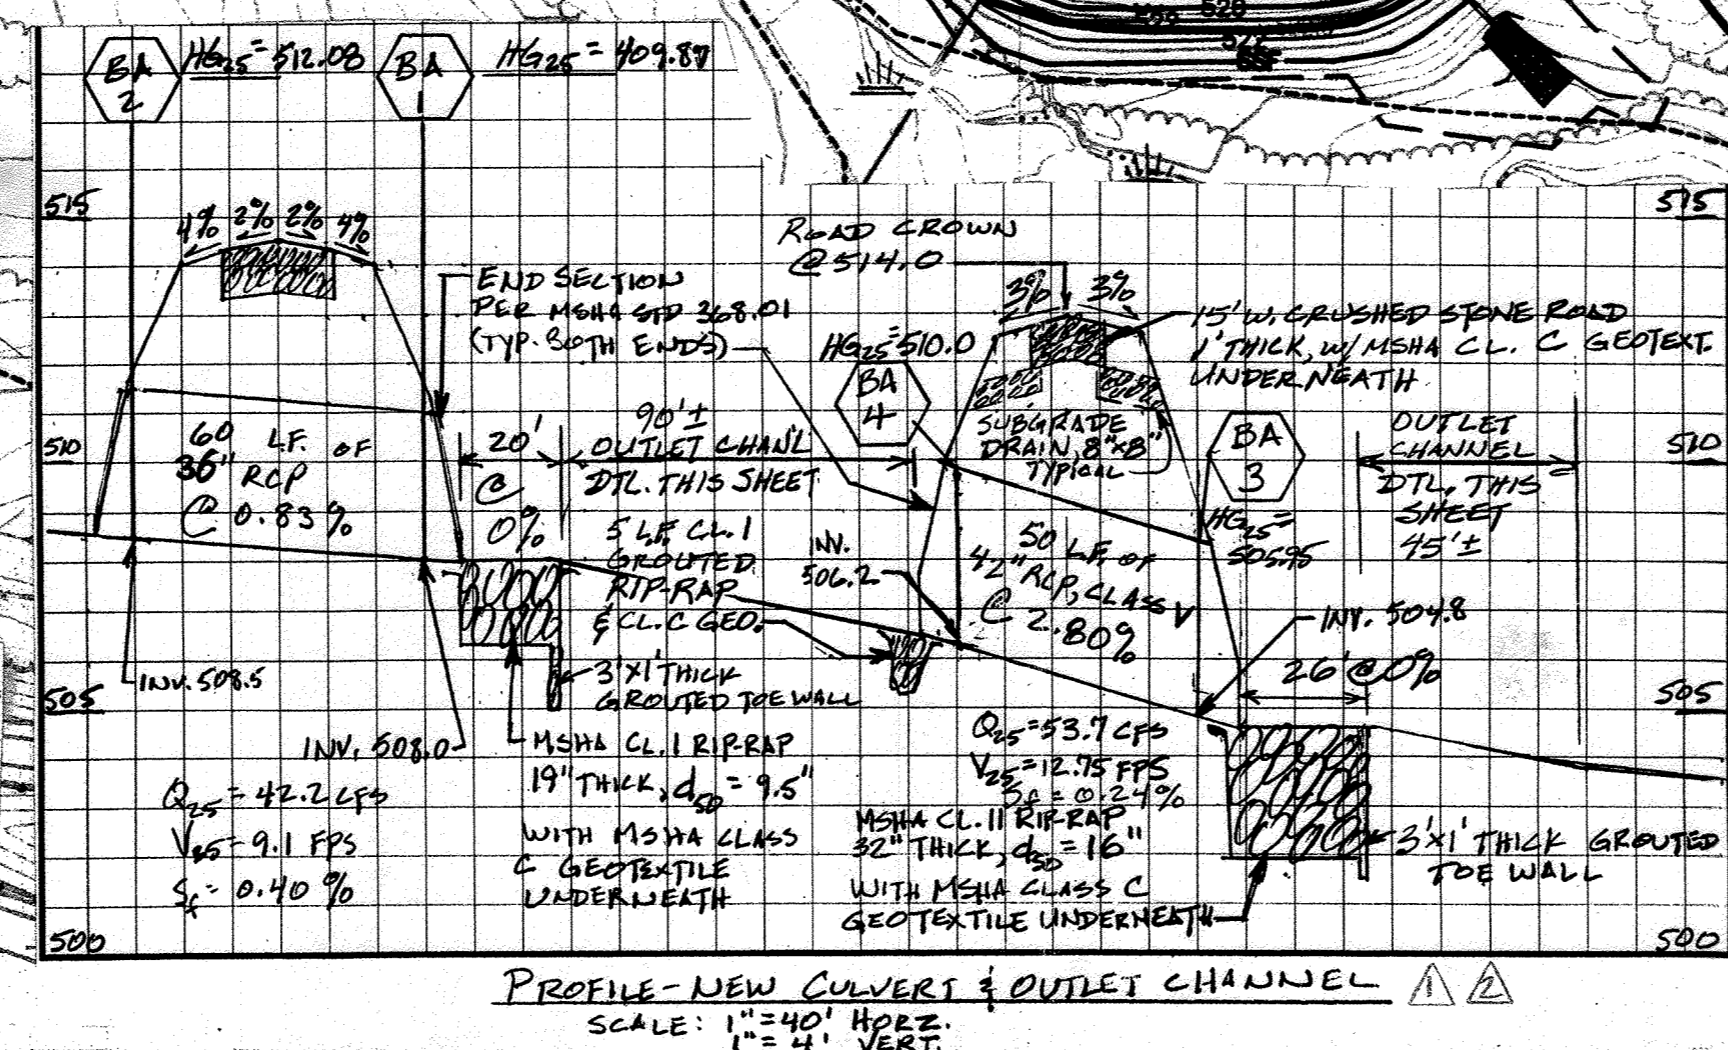 BA
2
HG25 = 512.08
BA
1
HG25 = 409.87
520
522
515
515
4% 2% 2% 4%
ROAD CROWN
@ 514.0
END SECTION
PER MSHA STD 368.01
(TYP. BOTH ENDS)
3% 3%
15' W. CRUSHED STONE ROAD
1' THICK, W/ MSHA CL. C GEOTEXT.
UNDERNEATH
HG25 = 510.0
BA
4
SUBGRADE
DRAIN, 8"X8"
TYPICAL
BA
3
HG25 =
505.95
OUTLET
CHANNEL
DTL. THIS
SHEET
45'±
510
510
60 L.F. OF
36" RCP
@ 0.83%
20'
@
0%
90'±
OUTLET CHAN'L
DTL. THIS SHEET
5 L.F. CL. I
GROUTED
RIP-RAP
& CL. C GEO.
INV.
506.2
50 L.F. OF
42" RCP, CLASS V
@ 2.80%
INV. 504.8
26' @ 0%
INV. 508.5
505
505
INV. 508.0
3'X1' THICK
GROUTED TOE WALL
MSHA CL. I RIP-RAP
19" THICK, d50 = 9.5"
WITH MSHA CLASS
C GEOTEXTILE
UNDERNEATH
Q25 = 42.2 CFS
V25 = 9.1 FPS
Sf = 0.40 %
Q25 = 53.7 CFS
V25 = 12.75 FPS
Sf = 0.24%
MSHA CL. II RIP-RAP
32" THICK, d50 = 16"
WITH MSHA CLASS C
GEOTEXTILE UNDERNEATH
3'X1' THICK GROUTED
TOE WALL
500
500
PROFILE - NEW CULVERT & OUTLET CHANNEL 1 2
SCALE: 1" = 40' HORZ.
1" = 4' VERT.